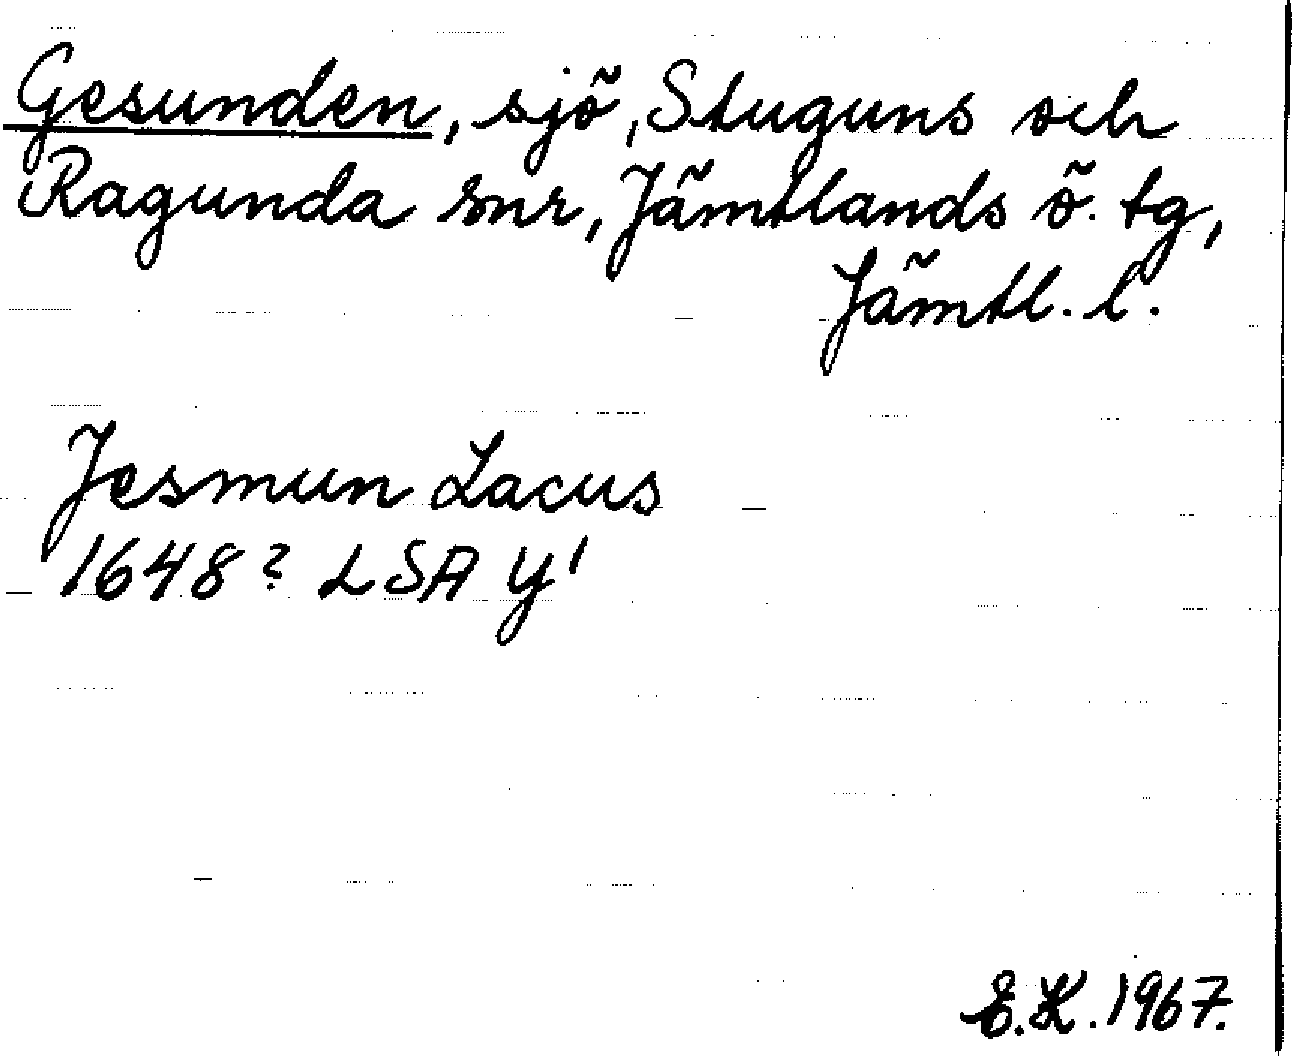 Gesunden, sjö, Stuguns och
Ragunda snr, Jämtlands ö. tg,
Jämtl. l.
Jesmun Lacus
1648? LSA Y¹
E.K. 1967.